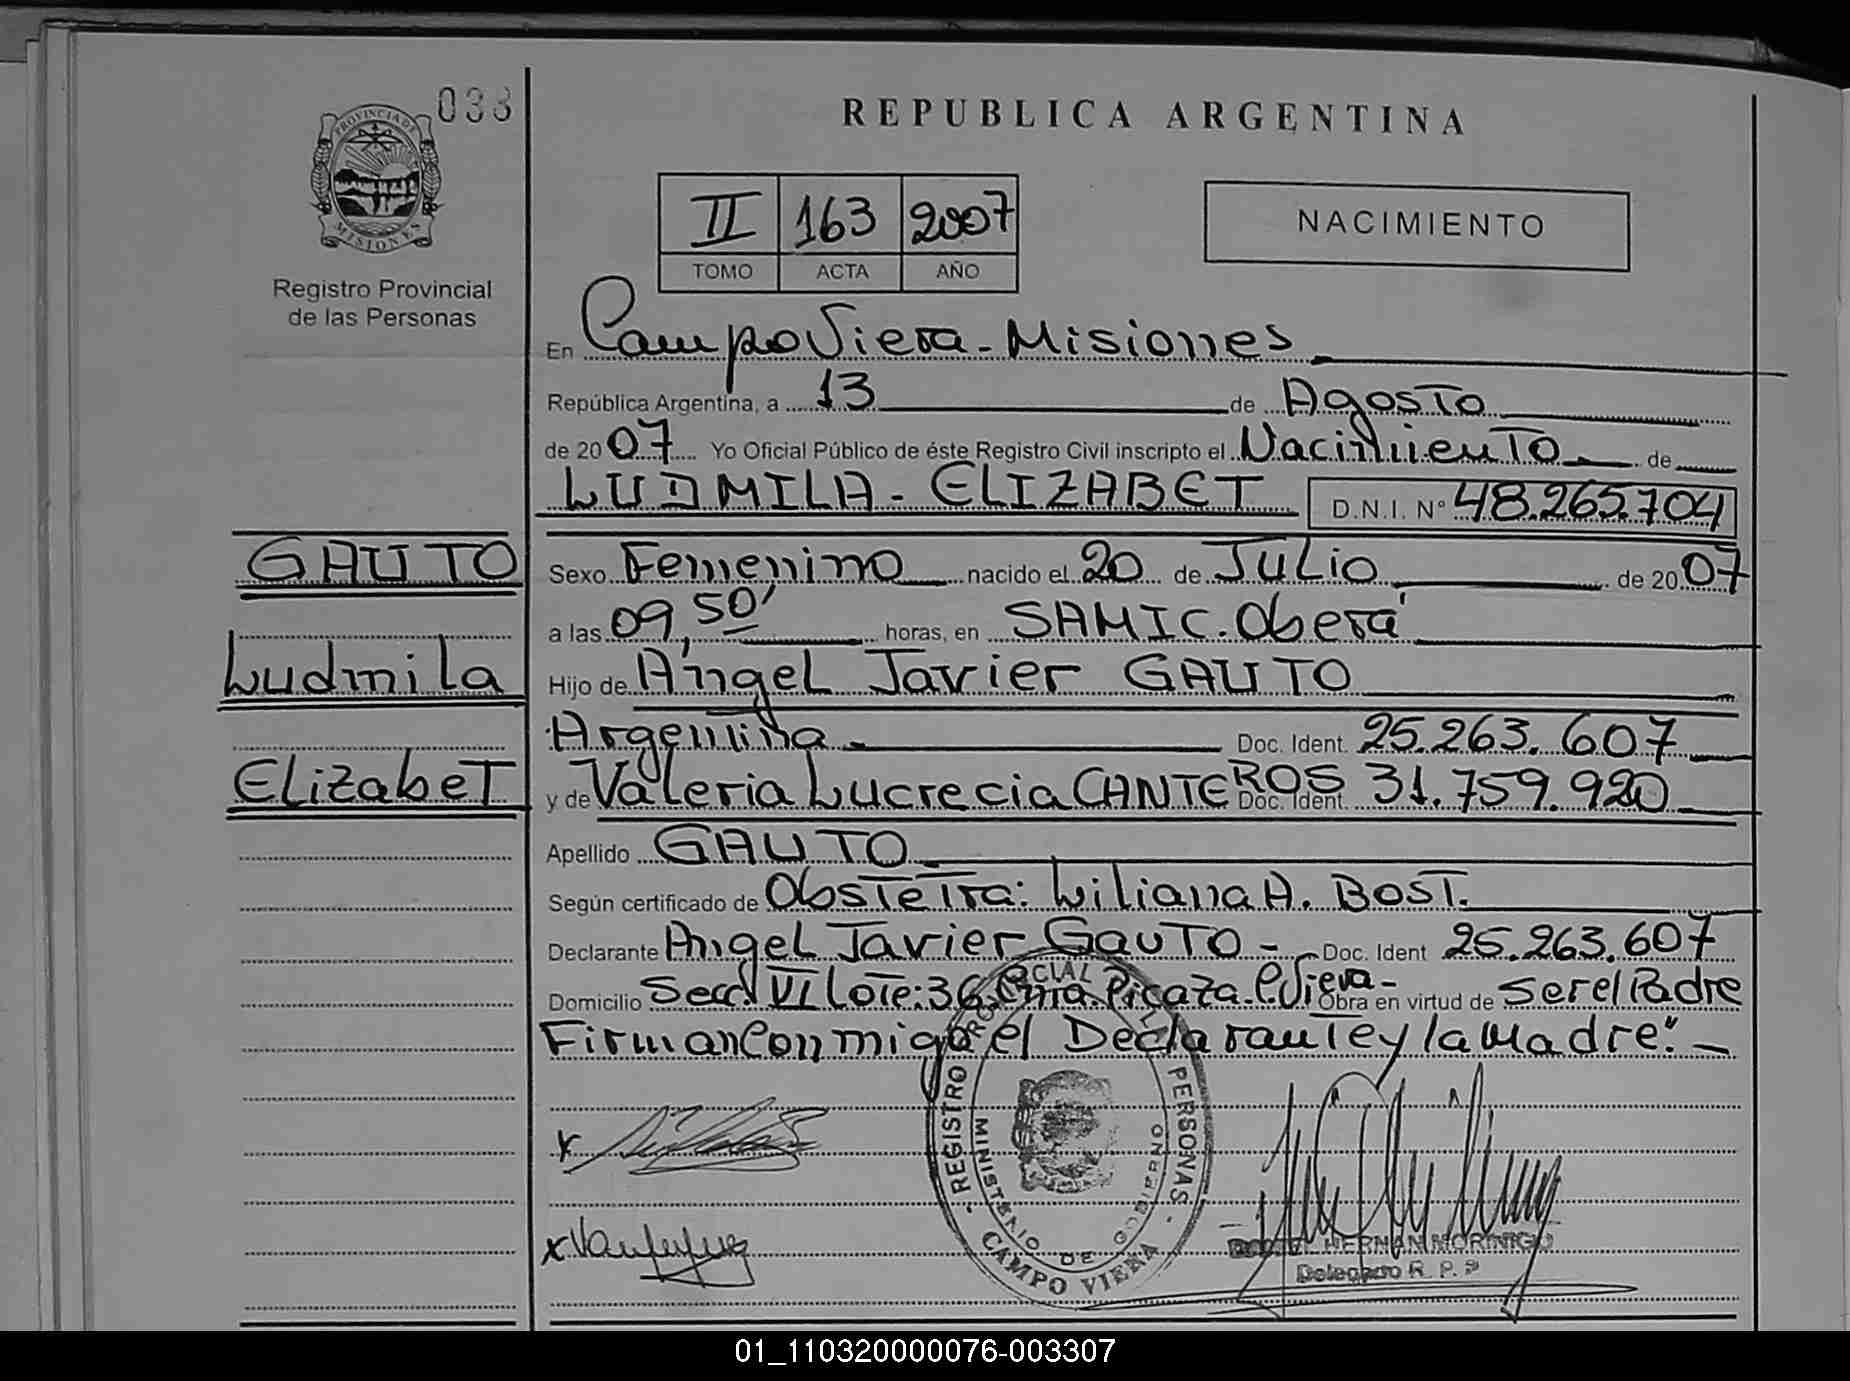 038
PROVINCIA DE
MISIONES
Registro Provincial
de las Personas
REPUBLICA ARGENTINA
II 163 2007
TOMO ACTA AÑO
NACIMIENTO
En Campo Viera - Misiones
República Argentina, a 13 de Agosto
de 2007 Yo Oficial Público de éste Registro Civil inscripto el Nacimiento de
LUDMILA - ELIZABET D.N.I. N° 48.265.704
GAUTO
Sexo Femenino nacido el 20 de Julio de 2007
a las 09,50' horas, en SAMIC. Oberá
Ludmila
Hijo de Angel Javier GAUTO
Argentina - Doc. Ident. 25.263.607
Elizabet
y de Valeria Lucrecia CANTEROS Doc. Ident. 31.759.920
Apellido GAUTO
Según certificado de Obstetra: Liliana A. Bost.
Declarante Angel Javier Gauto - Doc. Ident 25.263.607
Domicilio Secc. VI Lote: 36 Cnia. Picaza. C. Viera - Obra en virtud de ser el Padre
Firman Conmigo el Declarante y la Madre". -
REGISTRO PROVINCIAL DE LAS PERSONAS
MINISTERIO DE GOBIERNO
CAMPO VIERA
x
x
HERNAN MORINIGO
Delegado R. P. P
01_110320000076-003307